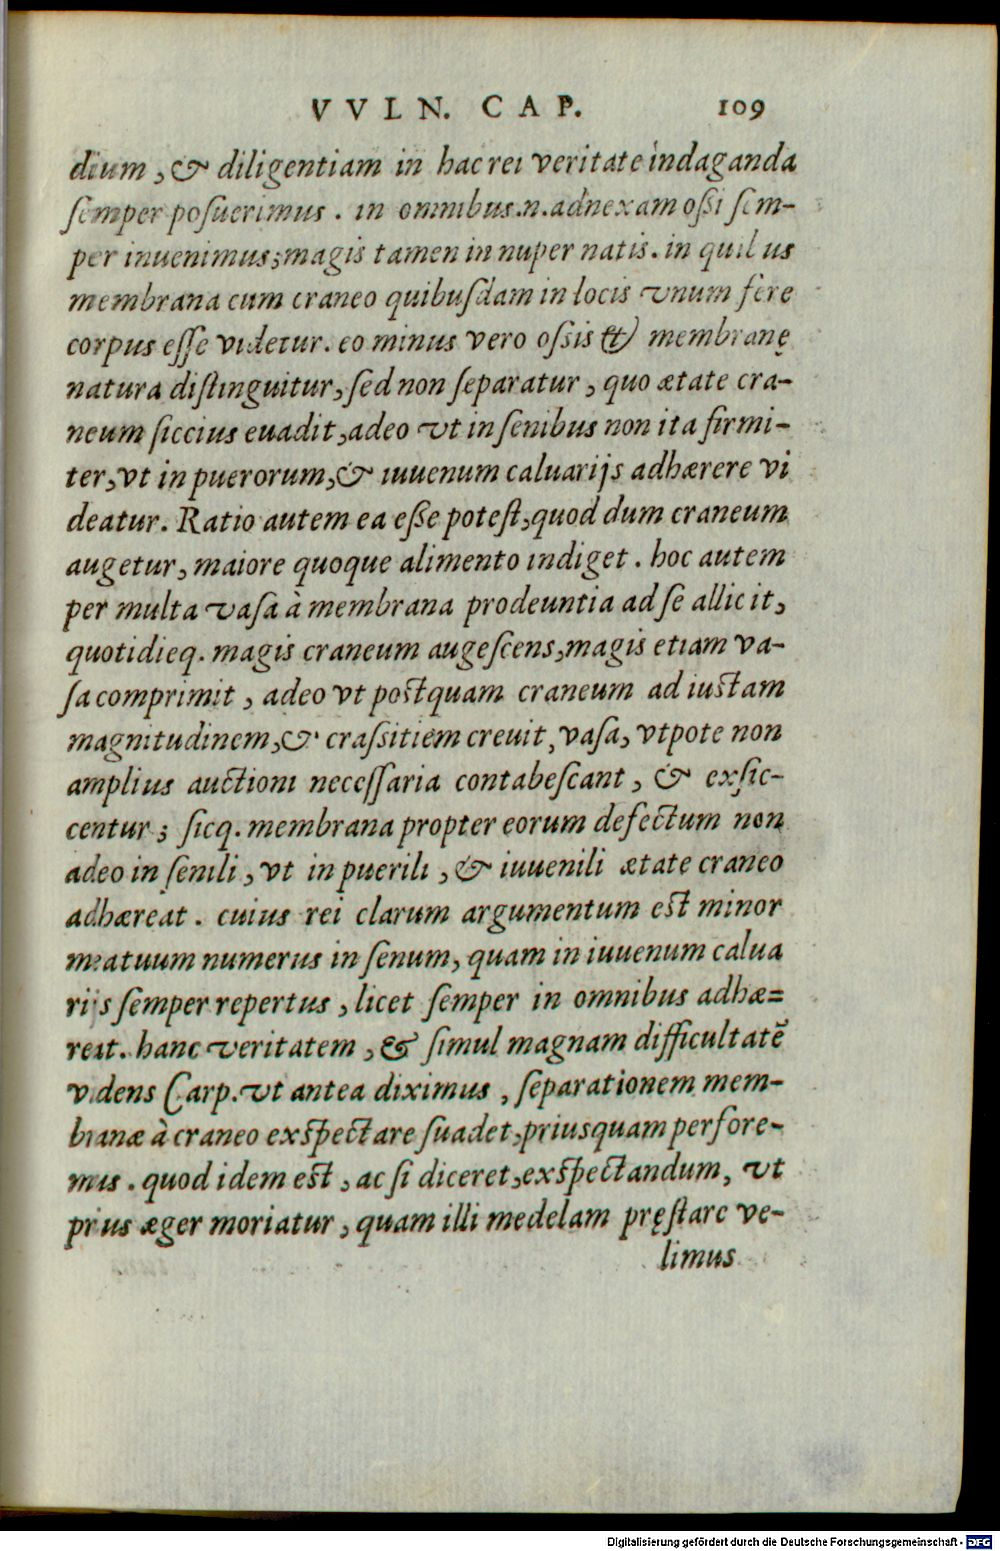 VVLN. CAP. 109
dium, & diligentiam in hac rei veritate indaganda
ſemper poſuerimus. in omnibus.n.adnexam oſſi ſem-
per inuenimus; magis tamen in nuper natis. in quibus
membrana cum craneo quibuſdam in locis vnum fere
corpus eſſe videtur. eo minus vero oſsis & membranę
natura diſtinguitur, ſed non ſeparatur, quo ætate cra-
neum ſiccius euadit, adeo vt in ſenibus non ita firmi-
ter, vt in puerorum, & iuuenum caluarijs adhærere vi
deatur. Ratio autem ea eſſe poteſt, quod dum craneum
augetur, maiore quoque alimento indiget. hoc autem
per multa vaſa à membrana prodeuntia ad ſe allicit,
quotidieq. magis craneum augeſcens, magis etiam va-
ſa comprimit, adeo vt poſtquam craneum ad iuſtam
magnitudinem, & craſsitiem creuit, vaſa, vtpote non
amplius auctioni neceſſaria contabeſcant, & exſic-
centur; ſicq. membrana propter eorum defectum non
adeo in ſenili, vt in puerili, & iuuenili ætate craneo
adhæreat. cuius rei clarum argumentum eſt minor
meatuum numerus in ſenum, quam in iuuenum calua
rijs ſemper repertus, licet ſemper in omnibus adhæ=
reat. hanc veritatem, & ſimul magnam difficultatẽ
videns Carp. vt antea diximus, ſeparationem mem-
branæ à craneo exſpectare ſuadet, priusquam perfore-
mus. quod idem eſt, ac ſi diceret, exſpectandum, vt
prius æger moriatur, quam illi medelam pręſtare ve-
limus
Digitalisierung gefördert durch die Deutsche Forschungsgemeinschaft - DFG